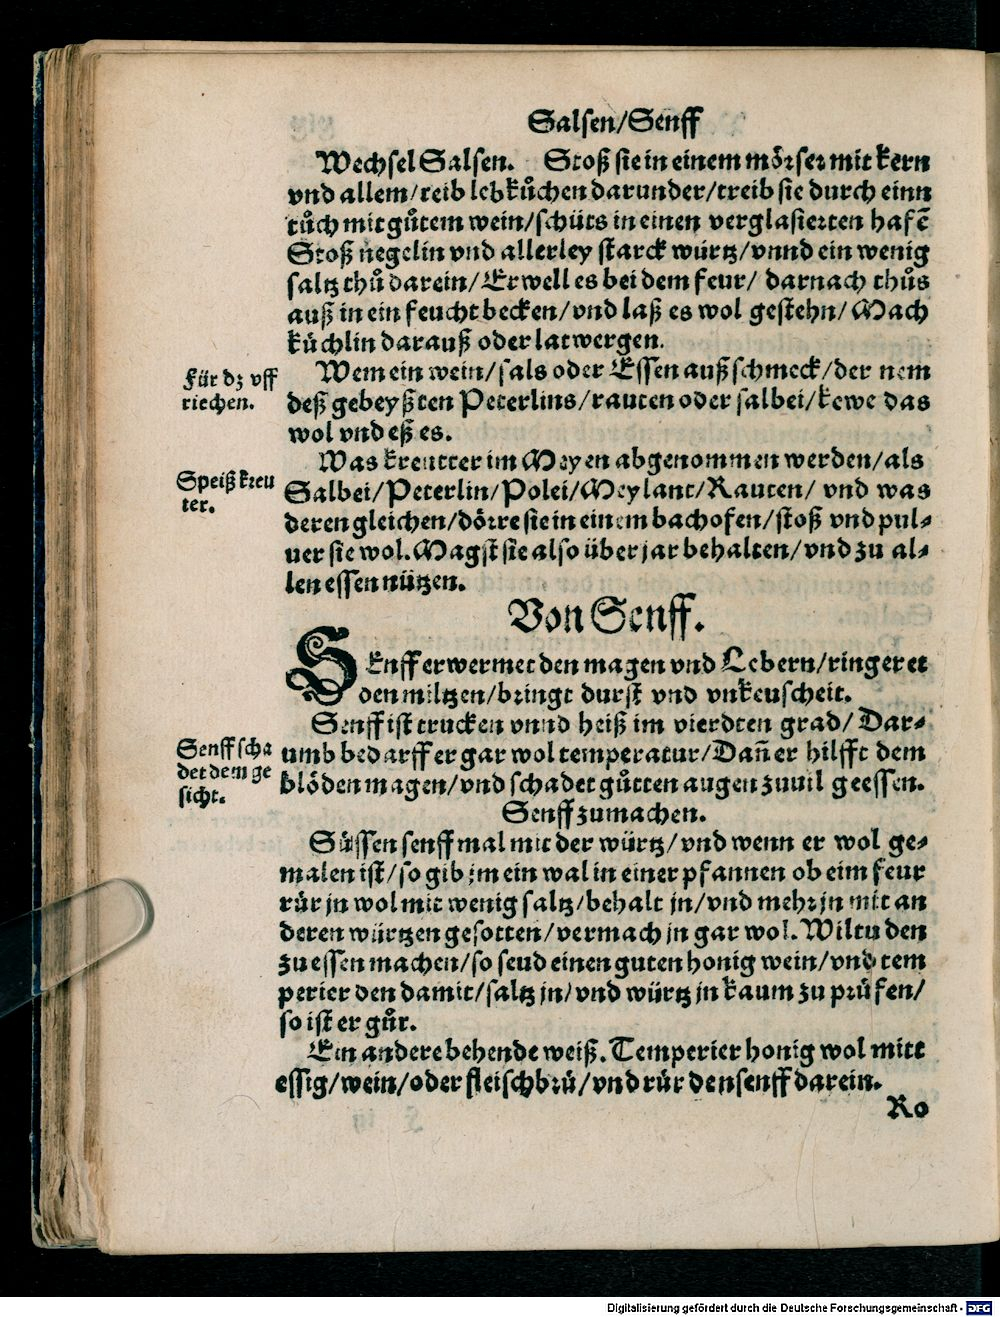 Salsen/Senff
Wechsel Salsen. Stoß sie in einem mörser mit kern
vnd allem/reib lebkůchen darunder/treib sie durch einn
tůch mit gůtem wein/schüts in einen verglasierten hafē
Stoß negelin vnd allerley starck würtz/vnnd ein wenig
saltz thů darein/Erwell es bei dem feur/ darnach thůs
auß in ein feucht becken/vnd laß es wol gestehn/Mach
küchlin darauß oder latwergen.
Für dz vff
riechen.
Wem ein wein/sals oder Essen auß schmeck/der nem
deß gebeyßten Peterlins/rauten oder salbei/kewe das
wol vnd eß es.
Speiß kreu
ter.
Was kreutter im Meyen abgenommen werden/als
Salbei/Peterlin/Polei/Meylant/Rauten/ vnd was
deren gleichen/dörre sie in einem bachofen/stoß vnd pul⸗
uer sie wol. Magst sie also über jar behalten/vnd zu al⸗
len essen nützen.
Von Senff.
SEnff erwermet den magen vnd Lebern/ringeret
den miltzen/bringt durst vnd vnkeuscheit.
Senff ist trucken vnnd heiß im vierdten grad/Dar⸗
Senff scha
det dem ge
sicht.
umb bedarff er gar wol temperatur/Dañ er hilfft dem
blöden magen/vnd schadet gůtten augen zuuil geessen.
Senff zumachen.
Süssen senff mal mit der würtz/vnd wenn er wol ge⸗
malen ist/so gib jm ein wal in einer pfannen ob eim feur
rür jn wol mit wenig saltz/behalt jn/vnd mehr jn mit an
deren würtzen gesotten/vermach jn gar wol. Wiltu den
zu essen machen/so seud einen guten honig wein/vnd tem
perier den damit/saltz jn/vnd würtz jn kaum zu prüfen/
so ist er gůt.
Ein andere behende weiß. Temperier honig wol mitt
essig/wein/oder fleischbrü/vnd rür den senff darein.
Ro
Digitalisierung gefördert durch die Deutsche Forschungsgemeinschaft - DFG